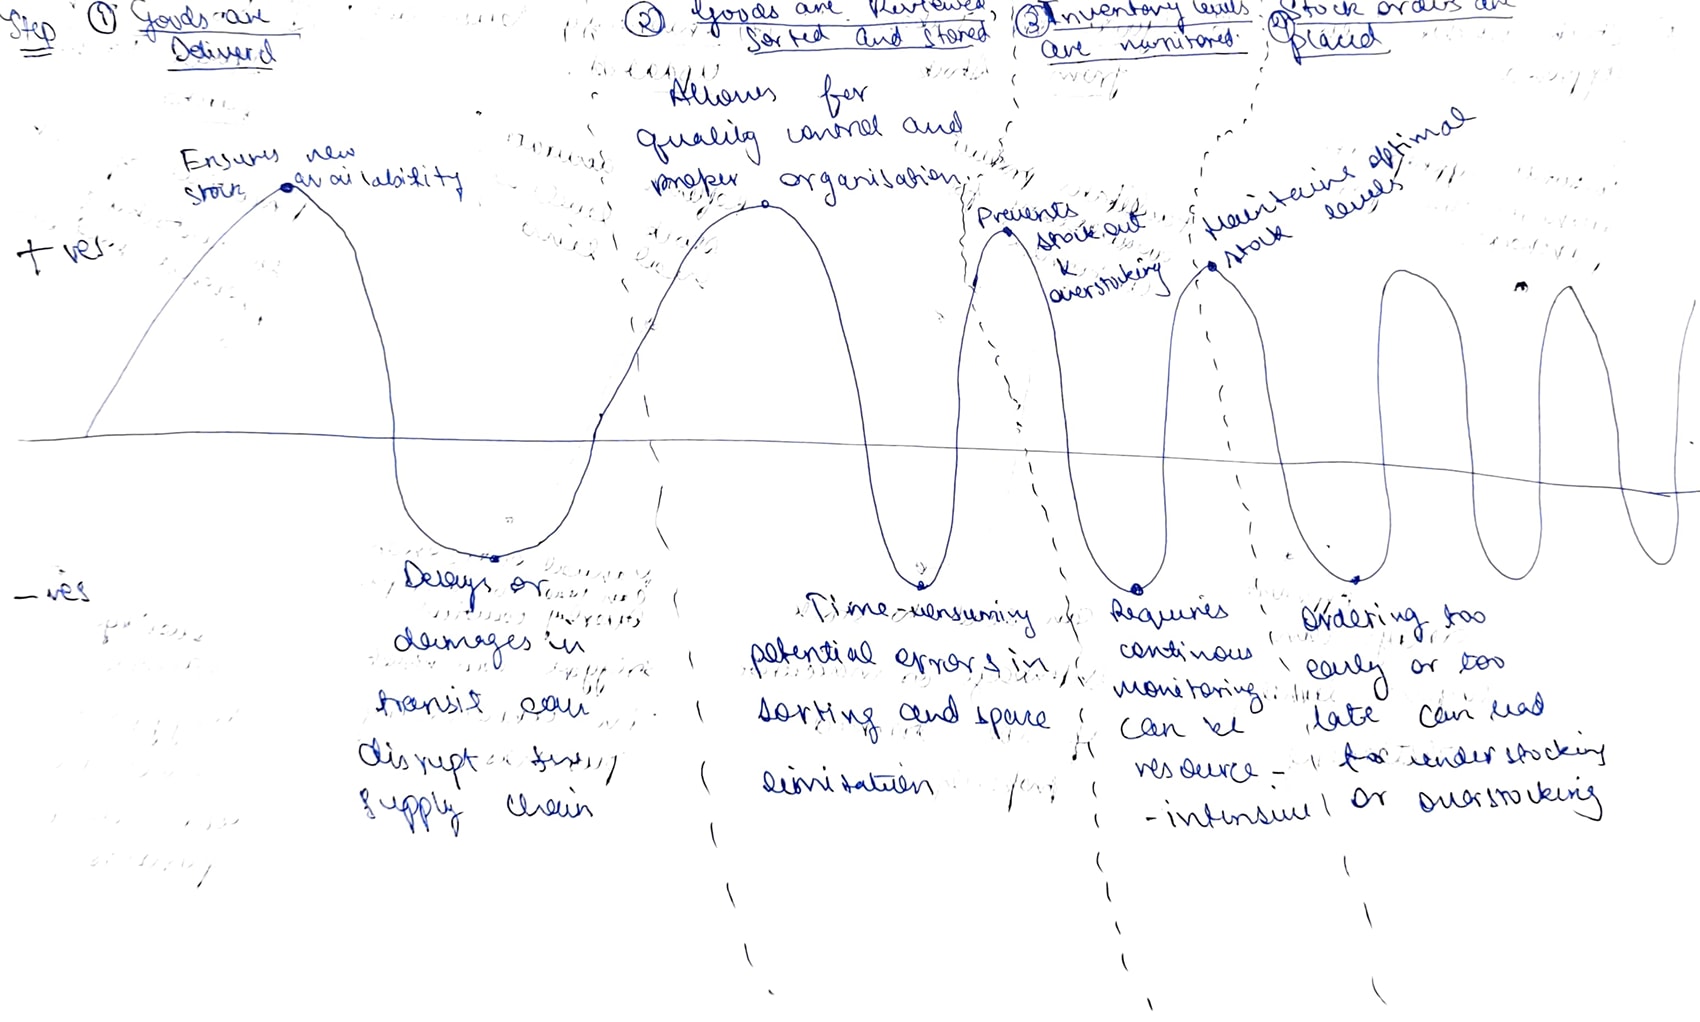 Step
① Goods are
Deliverd
② Goods are Reviewed,
Sorted and Stored
③ Inventory levels
are monitored.
④ Stock orders are
placed
+ ves
Ensures new
stock availability
Allows for
quality control and
proper organisation
Prevents
stock out
&
overstocking
Maintains optimal
stock levels
- ves
Delays or
damages in
transit can
disrupt
supply chain
Time-consuming
potential errors in
sorting and space
limitation
Requires
continous
monitoring
can be
resource -
- intensive
ordering too
early or too
late can lead
to understocking
or overstocking